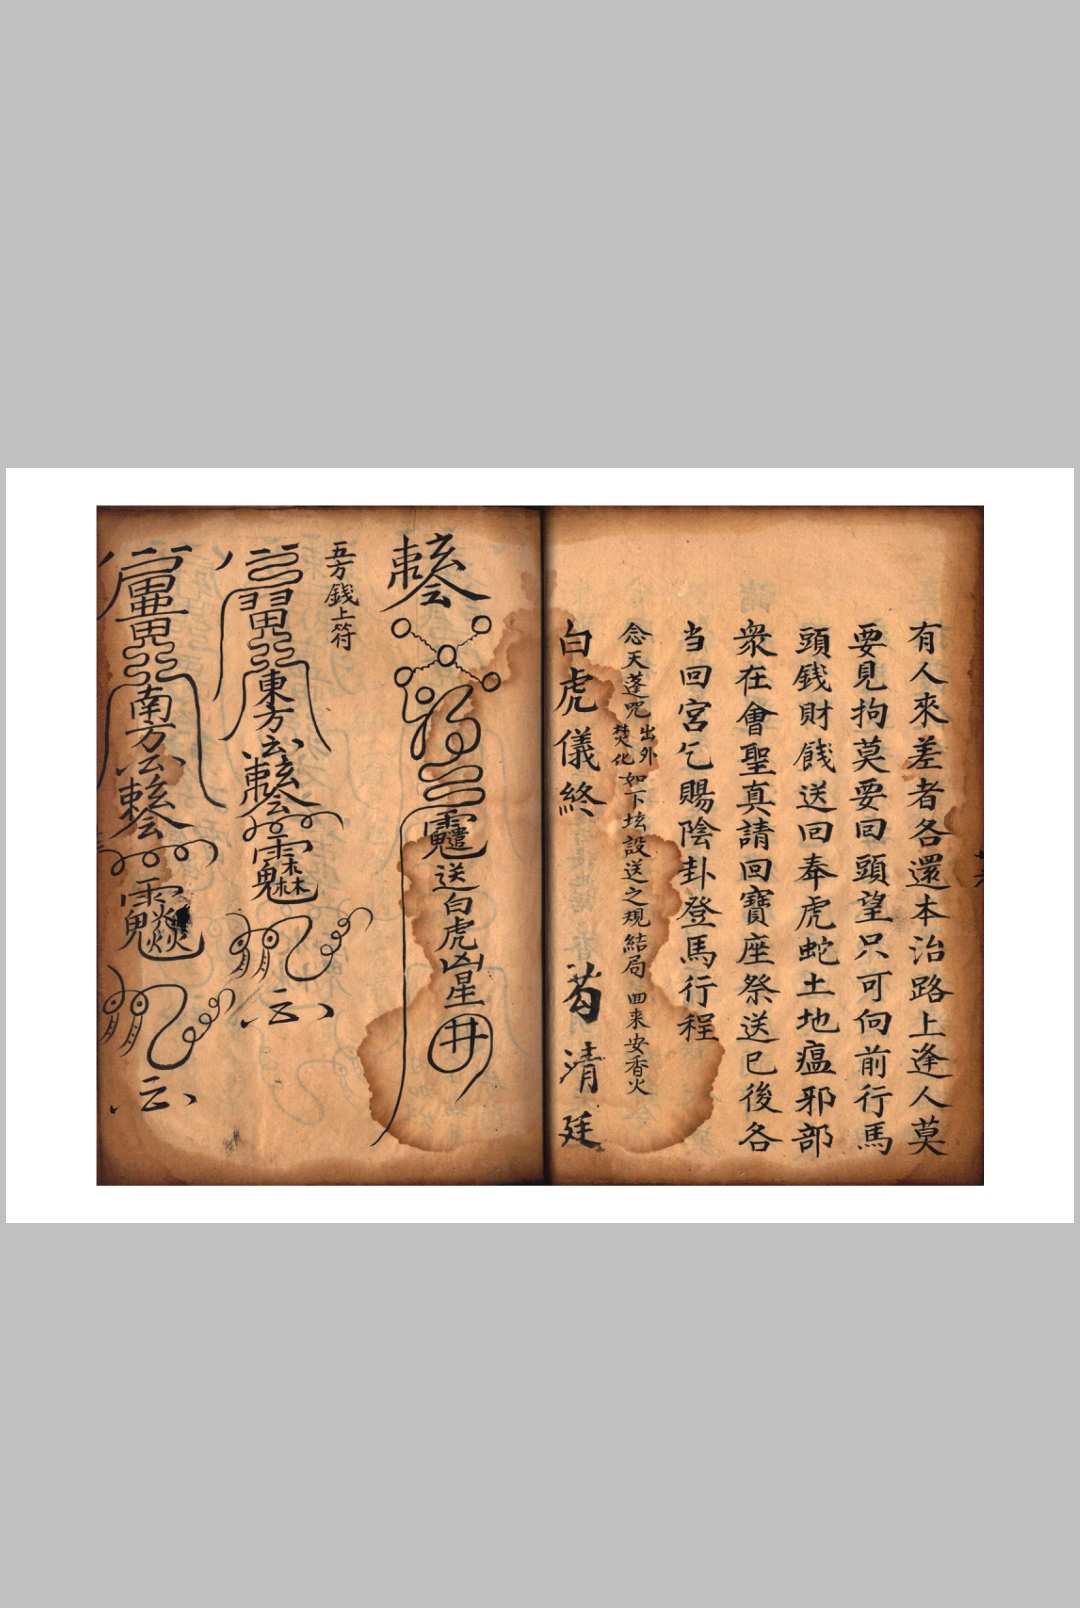 有人來差者各還本治路上逢人莫
要見拘莫要回頭望只可向前行馬
頭錢財餞送回奉虎蛇土地瘟邪部
衆在會聖真請回寶座祭送已後各
当回宮乞賜陰卦登馬行程
念天蓬咒出外焚化如下坛設送之現結局 回来安香火
白虎儀終
清廷
送白虎凶星
井
五方錢上符
東方
云
南方
云